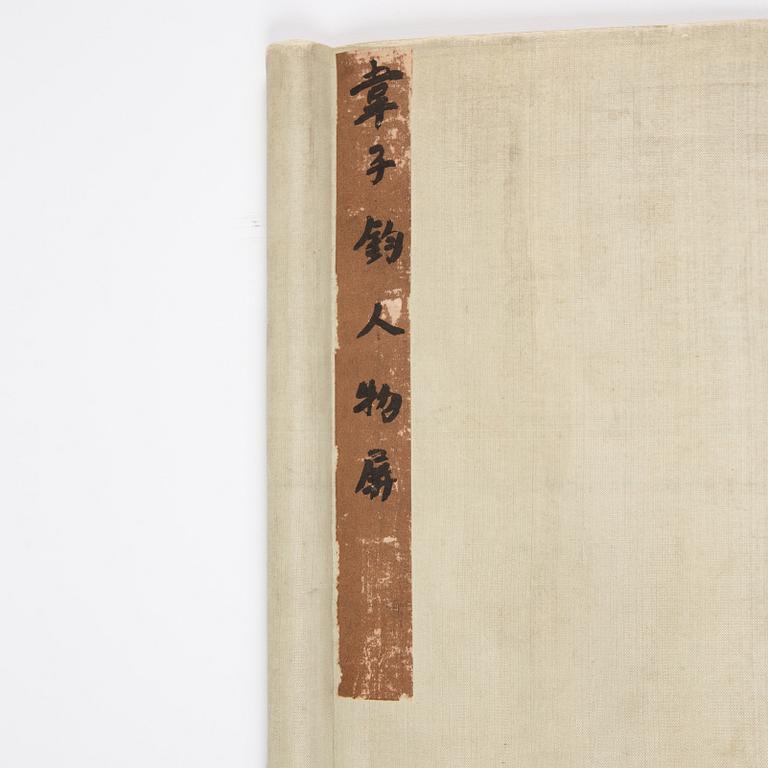 韋子鈞人物屏